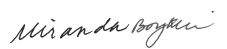 Miranda Boykin